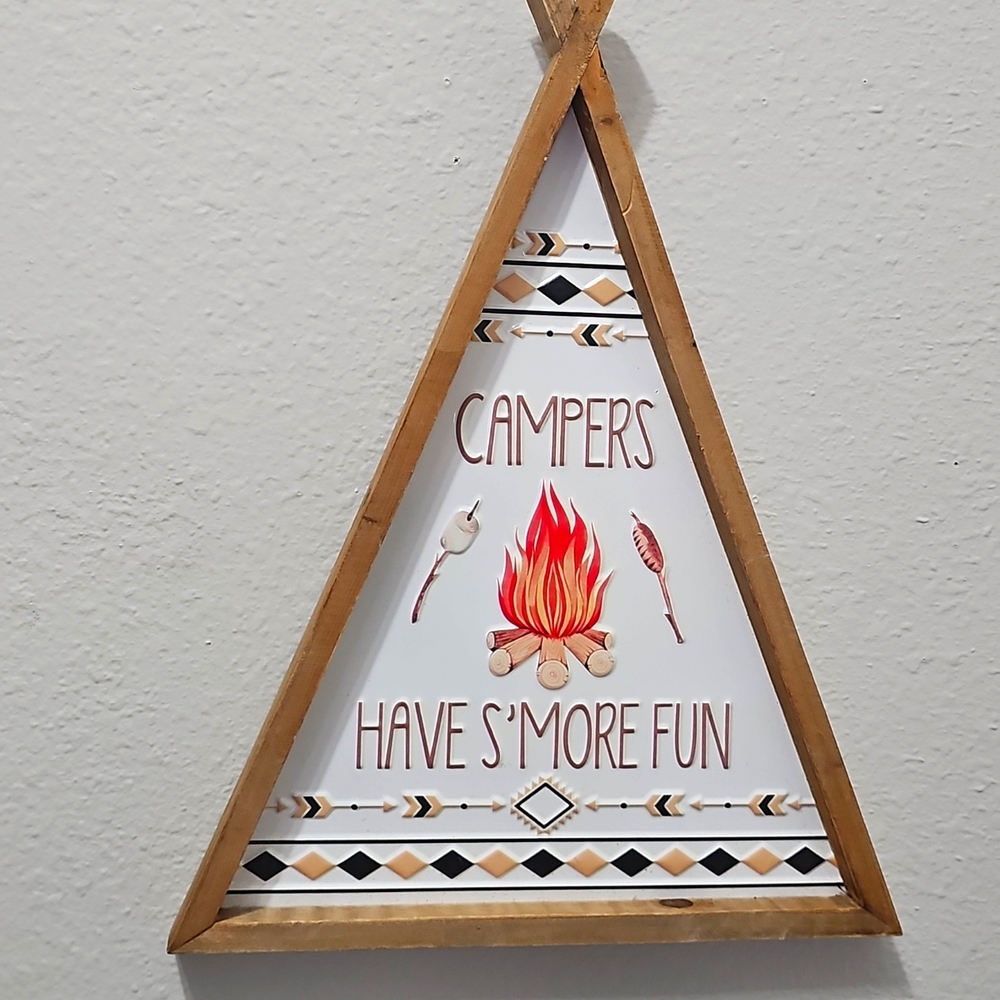 CAMPERS
HAVE S'MORE FUN